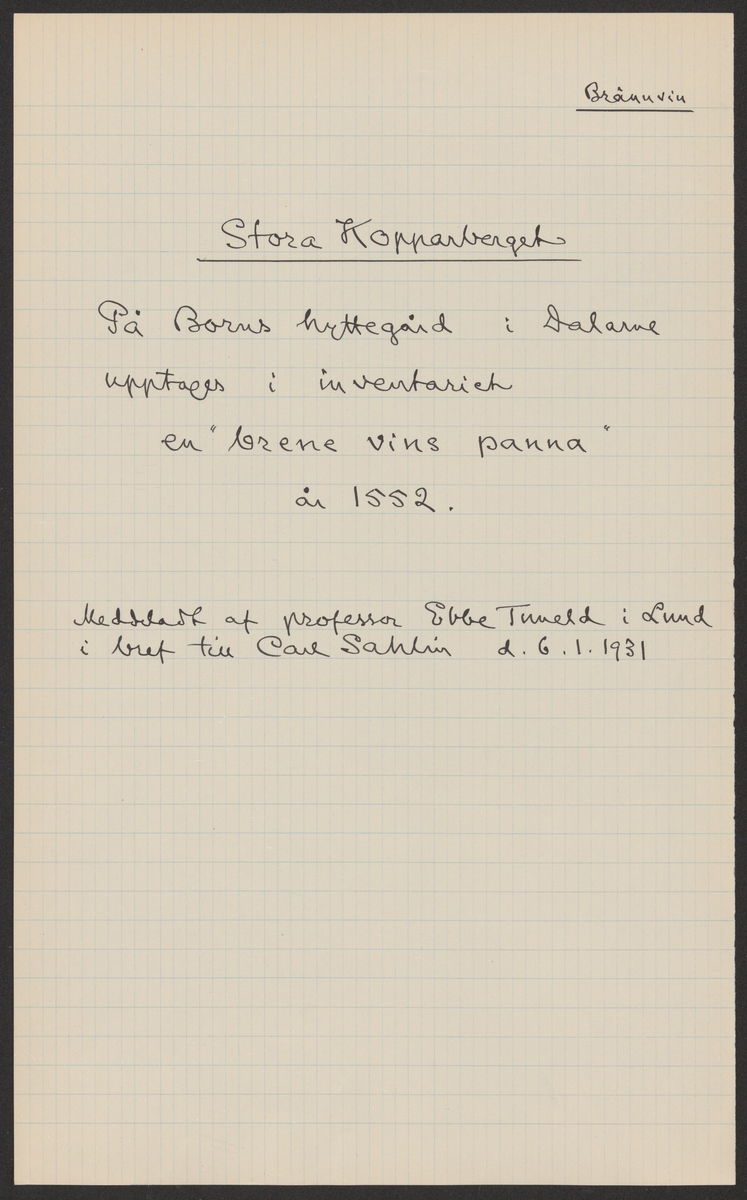 Brännvin
Stora Kopparberget
På Borns hyttegård i Dalarne
upptages i inventariet
en "brene vins panna"
år 1552.
Meddeladt af professor Ebbe Tuneld i Lund
i bref till Carl Sahlin d. 6.1.1931